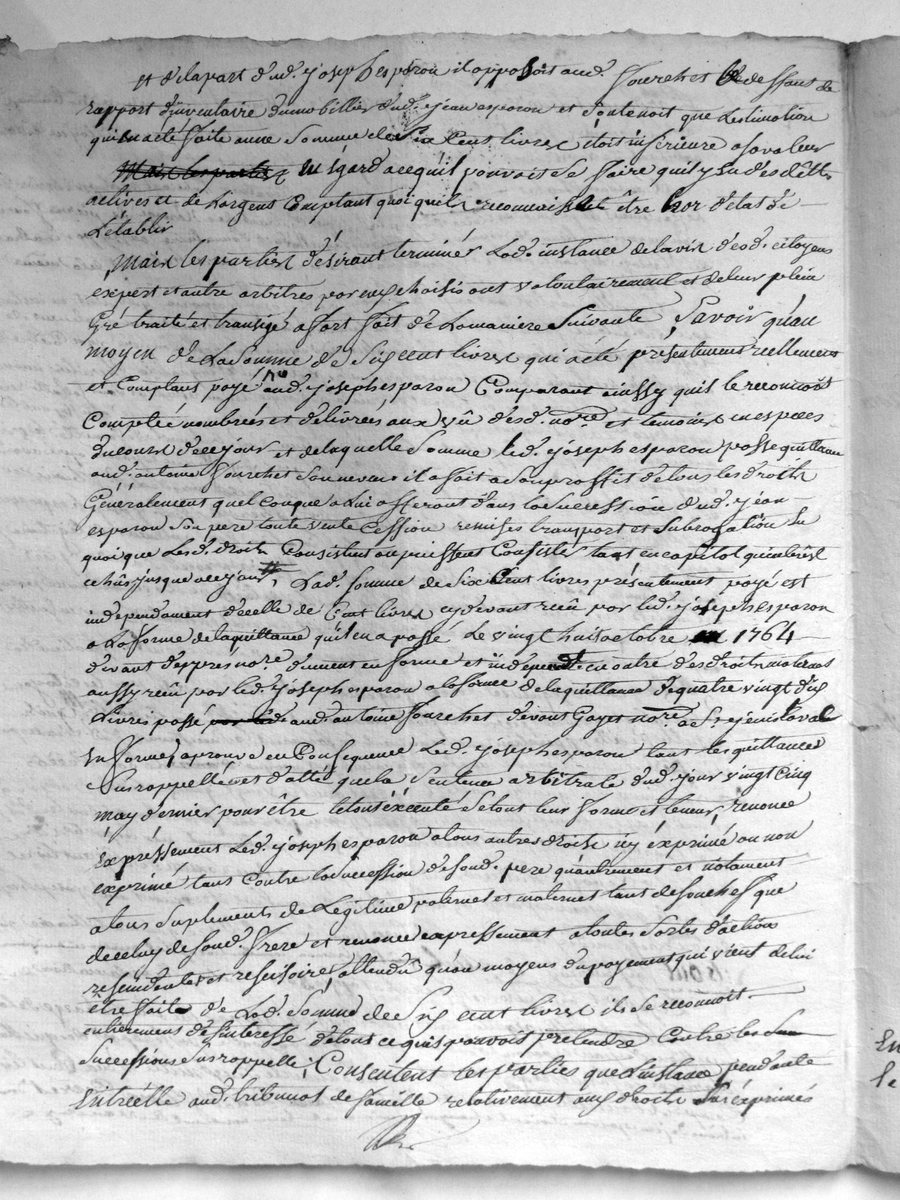 Et de la part dud. joseph esparon il opposoit aud. fourchet le deffaut de
rapport d'inventaire du mobillier dud. jean esparon et soutenoit que lestimation
qui en a eté faite a une somme de six cent livres étoit inferieure a sa valeur
Mais les parties Eu égard a ce quil pouvoit se faire quil y eu des dettes
actives et de l'argent Comptant quoi quil reconnaisse être hor d'etat de
L'établir
Mais les parties désirant terminér Lad. instance de lavis desd. citoyens
expert et autre arbitres par eux choisis ont volontairement et de leur plein
Gré traité et transigé a fort fait de la maniere Suivante, Savoir qu'au
moyen de La Somme de Six cent livres qui a été présentement réellement
et Comptant payé aud. joseph esparon Comparant ainssy quil le reconnoit
Comptée nombrées et délivrées aux vû desd. nore. et temoins en especes
du cours de ce jour et de laquelle Somme led. joseph esparon passe quittance
aud. antoine fourchet Son neveu il a fait a Son proffit de tous les droits
Généralement quelconque a Lui afferant dans la Succession dud. jean
esparon Son pere toute vente Cession remises transport et Subrogation En
quoi que Lesd. droits Consistent ou puissent Consister tant en capital quinterest
echus jusque a ce jour, Lad. Somme de Six Cent livres présentement payé est
independament de celle de Cent livres cy devant recue par led. joseph esparon
a La forme de la quittance qu'il en a passé Le vingt huit octobre 1764
devant nore. dument en forme et independt. en outre des droits maternels
aussy recu par led. joseph esparon a la forme de la quittance de quatre vingt dix
Livres passé aud. antoine fourchet devant Gayet nore. a St. genis laval
En forme, aprouve en Consequence Led. joseph esparon tant les quittances
Susrappellées et datté que la Sentence arbitrale dud. jour vingt cinq
may dernier pour être le tout éxécuté Selont leur forme et teneur, renonce
Expréssement Led. joseph esparon a tous autres droits icy éxprimé ou non
exprimé tant contre la Succession de Sond. pere qu'autrement et notament
a tous Suplements de Légitime paternels et maternel tant de Son chef que
de celuy de Sond. frere et renonce expressement a toutes Sortes d'action
rescindentes et rescisoires, attendû qu'au moyens du payement qui vient de lui
être fait de Lad. Somme de Six cent livres il Se reconnoit
entierement désinteressé de tous ce quil pouvoit pretendre Contre les
Successions Susrappelle; Consentent les parties que Linstance pendante
Entréelle aud. tribunal de famille relativement aux droits Susexprimés